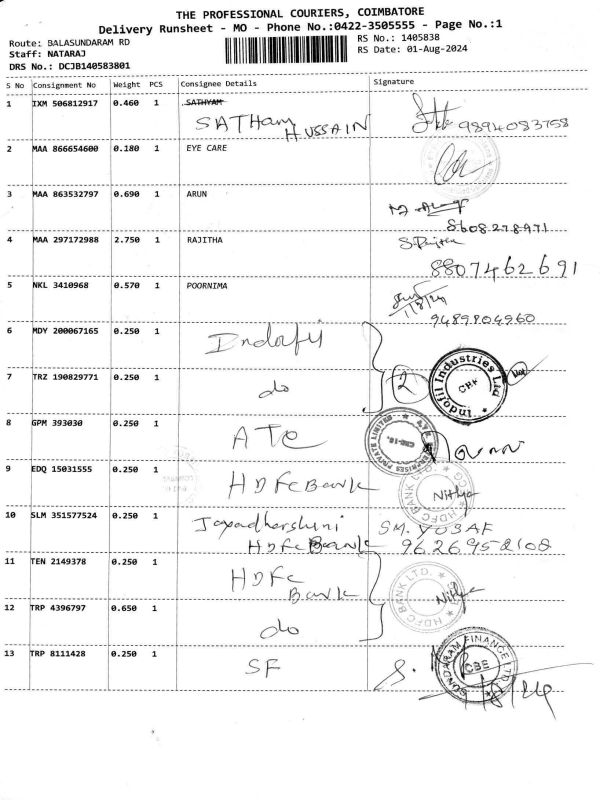 THE PROFESSIONAL COURIERS, COIMBATORE
Delivery Runsheet - MO - Phone No.:0422-3505555 - Page No.:1
Route: BALASUNDARAM RD
RS No.: 1405838
Staff: NATARAJ
RS Date: 01-Aug-2024
DRS No.: DCJB140583801
S No Consignment No Weight PCS Consignee Details Signature
1 IXM 506812917 0.460 1 SATHYAM
SATHam HUSSAIN 9894083758
2 MAA 866654600 0.180 1 EYE CARE
3 MAA 863532797 0.690 1 ARUN
8608278971
4 MAA 297172988 2.750 1 RAJITHA
8807462691
5 NKL 3410968 0.570 1 POORNIMA
9489804960
6 MDY 200067165 0.250 1 Indofil
7 TRZ 190829771 0.250 1 do 2
Indofil Industries Ltd
8 GPM 393030 0.250 1 ATE
9 EDQ 15031555 0.250 1 HDFC Bank Nithya
HDFC BANK LTD.
10 SLM 351577524 0.250 1 Jayadharshini SM. YUSAF
HDFC Bank 9626952108
11 TEN 2149378 0.250 1 HDFC Bank Nithya
HDFC BANK LTD.
12 TRP 4396797 0.650 1 do
13 TRP 8111428 0.250 1 SF
SUNDARAM FINANCE LTD
CBE